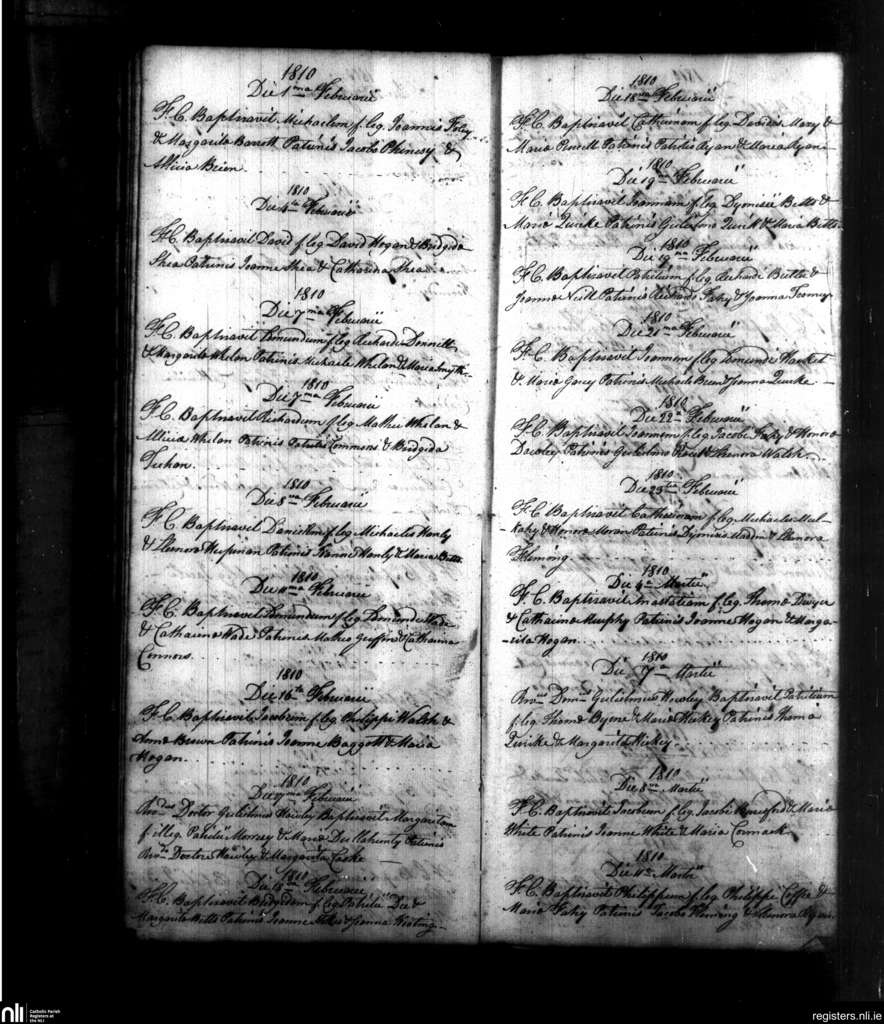 1810
Die 1ma Februarii
F. C. Baptisavit Michaelem f. leg. Joannis Foley
& Margarita Barrett Patrinis Jacobo &
Allicia Brien.
1810
Die 4ta Februarii
F. C. Baptisavit David f leg David Hogan & Bridgida
Shea Patrinis Joanne Shea & Catharina Shea
1810
Die 7ma Februarii
F. C. Baptisavit Edmundum f leg Richardi Dennett
& Margarita Whelan Patrinis Michaele Whelan & Maria Smyth
1810
Die 7ma Februarii
F. C. Baptisavit Richardum f leg Mathei Whelan &
Allicia Whelan Patrinis Patritio Commons & Bridgida
1810
Die 8va Februarii
F. C. Baptisavit f leg Michaelis Hanly
& Elenora Patrinis Joanne Hanly & Maria Butler
1810
Die Februarii
F. C. Baptisavit Edmundum f leg Edmundi Wade
& Catharina Wade Patrinis Matheo Griffin & Catharina
Connors.
1810
Die 16ta Februarii
F. C. Baptisavit Jacobum f leg Philippi Walsh &
Anna Brown Patrinis Joanne Baggott & Maria
Hogan.
1810
Die 17ma Februarii
Rvdus Doctor Gulielmus Baptisavit Margaritam
f. illeg. Patritii & Maria Patrinis
Doctore & Margarita
1810
Die 18va Februarii
F. C. Baptisavit Bridgidam f leg Patritii &
Margarita Betts Patrinis Joanne & Joanna Keating
1810
Die 18va Februarii
F. C. Baptisavit Catharinam f leg &
Maria Powell Patrinis Patritio Ryan & Maria Ryan
1810
Die 19na Februarii
F. C. Baptisavit Joannam f leg Betts &
Maria Quirke Patrinis Gulielmo Quirk & Maria Betts
1810
Die 19na Februarii
F. C. Baptisavit Patritium f leg Richardi Butler &
Joanna Patrinis Richardo Fahy & Joanna
1810
Die 21ma Februarii
F. C. Baptisavit Joannem f leg Edmundi Hacket
& Maria Patrinis Michaele & Joanna Quirke
1810
Die 22a Februarii
F. C. Baptisavit Joannem f leg Jacobi Fahy & Honora
Patrinis Gulielmo & Elenora Walsh
1810
Die 23tia Februarii
F. C. Baptisavit Catharinam f leg Michaelis Mul-
-kahy & Honora Moran Patrinis & Elenora
Fleming
1810
Die 4ta Martii
F. C. Baptisavit Anastatiam f. leg Thoma Dwyer
& Catharina Murphy Patrinis Joanne Hogan & Marga-
-rita Hogan.
1810
Die 7ma Martii
Gulielmus Baptisavit Patritium
f. leg Thoma Byrne & Maria Hickey Patrinis Thoma
Quirke & Margarita Hickey.
1810
Die 8va Martii
F. C. Baptisavit Jacobum f. leg Jacobi & Maria
White Patrinis Joanne White & Maria Cormack
1810
Die 11ma Martii
F. C. Baptisavit Philippum f. leg Philippi Coffee &
Maria Fahy Patrinis Jacobo Fleming & Elenora
nli
Catholic Parish
Registers at
the NLI
registers.nli.ie